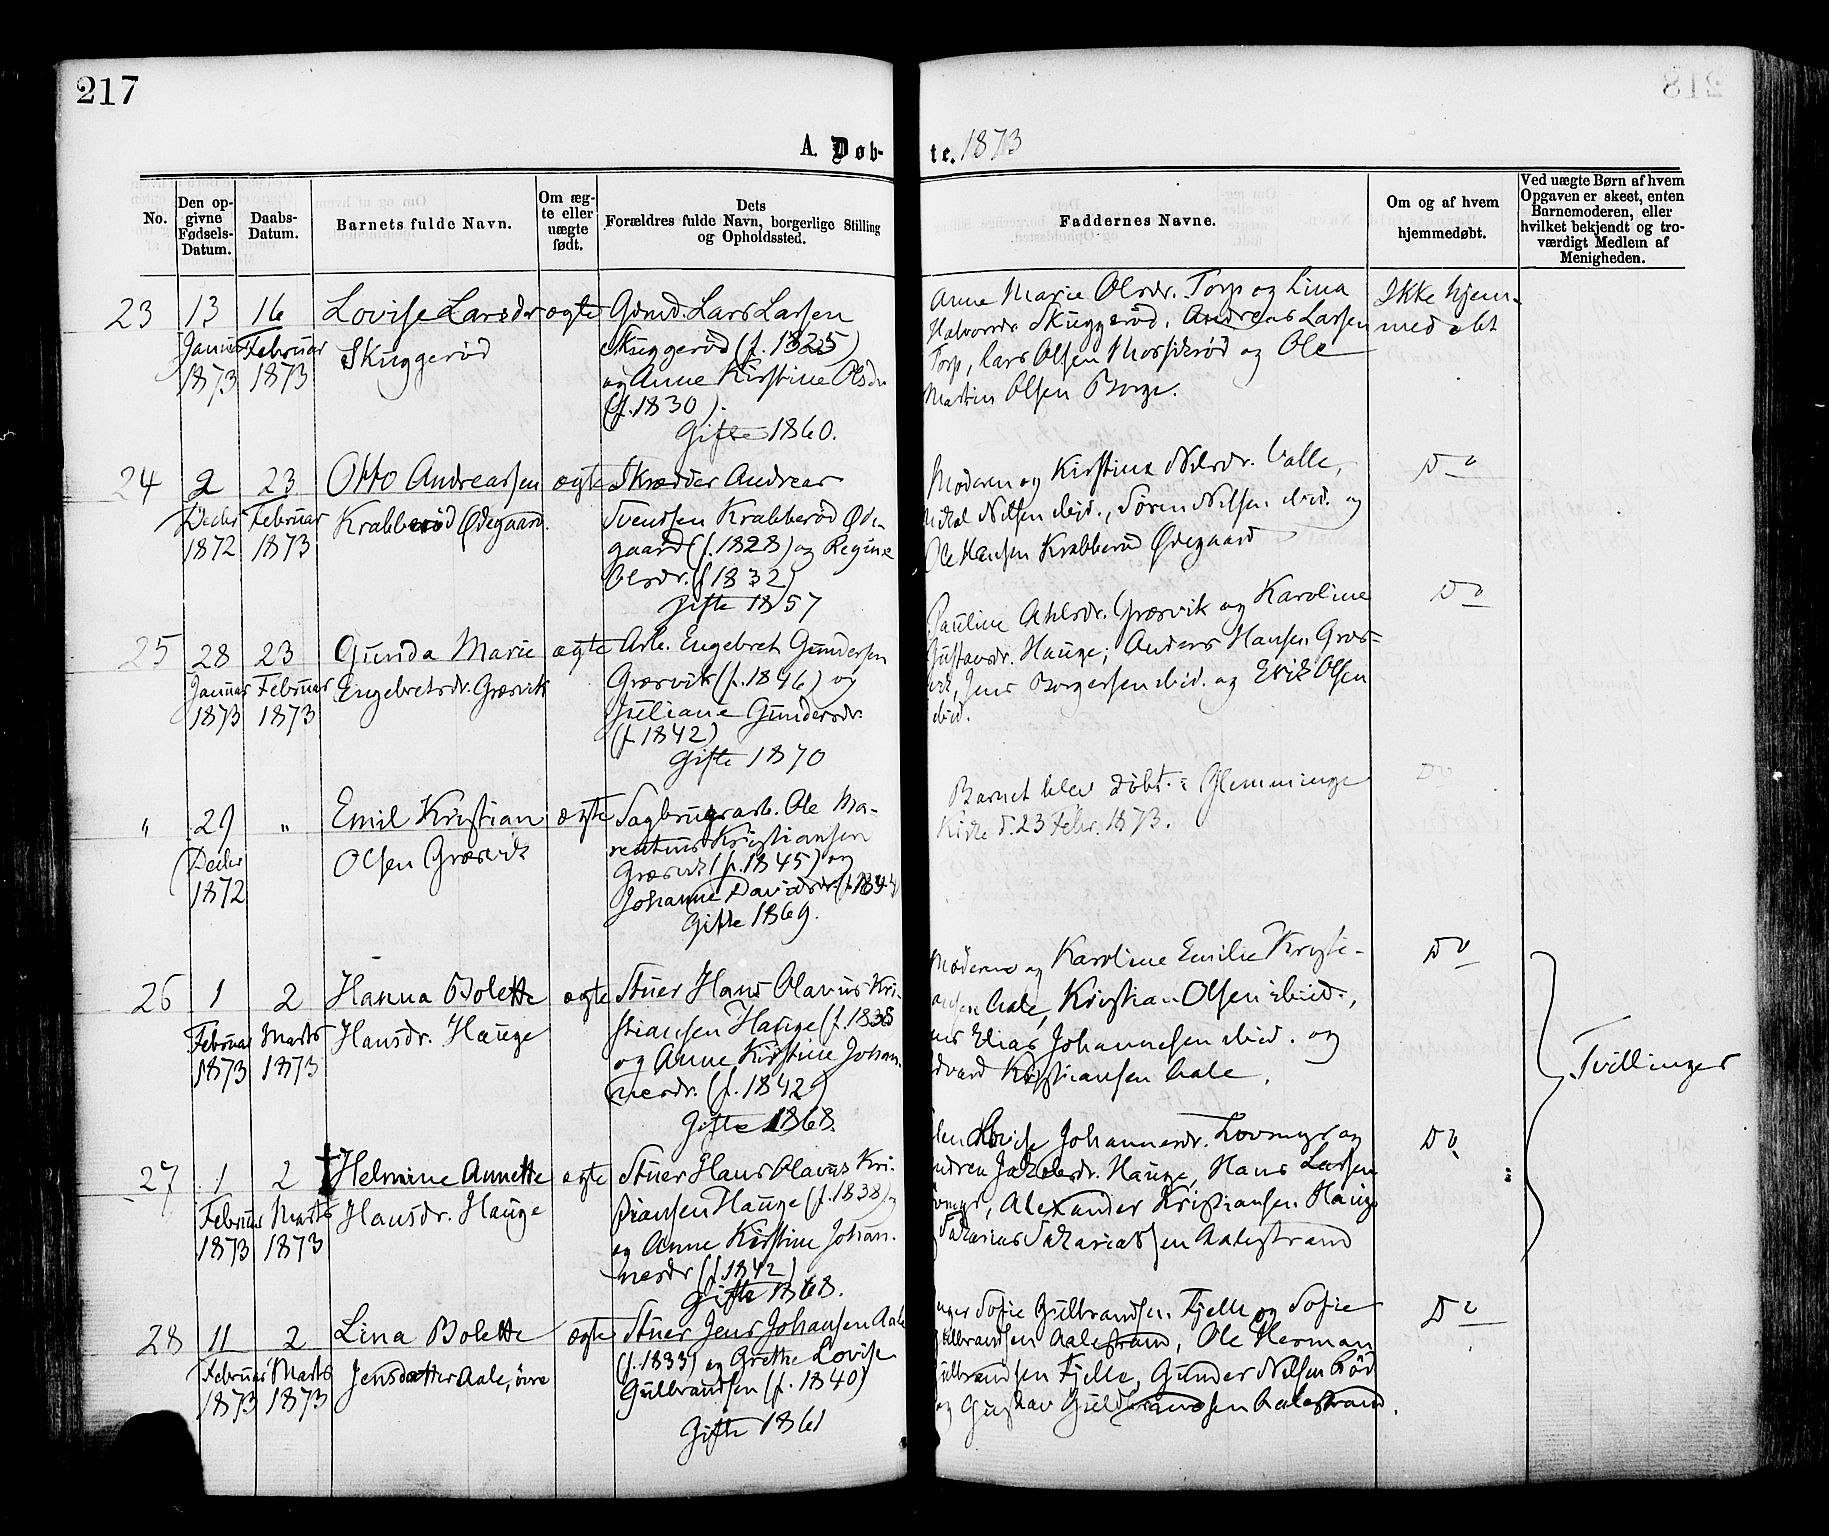 217
A. Døb-
te. 1873
No.
Den op-
givne
Fødsels-
Datum.
Daabs-
Datum.
Barnets fulde Navn.
Om æg-
te eller
uægte
født.
Dets
Forældres fulde Navn, borgerlige Stilling
og Opholdssted.
Faddernes Navne.
Om og af hvem
hjemmedøbt.
Ved uægte Børn af hvem
Opgaven er skeet, enten
Barnemoderen, eller
hvilket bekjendt og tro-
værdigt Medlem af
Menigheden.
23
13
Januar
1873
16
Februar
1873
Lovise Larsdr
Skuggerød
ægte
Gdmd. Lars Larsen
Skuggerød (f. 1825)
og Anne Kirstine Olsdr
(f. 1830).
Gifte 1860.
Anne Marie Olsdr. Torp og Lina
Halvorsdr Skuggerød, Andreas Larsen
Torp, Lars Olsen og Ole
Martin Olsen Borge.
Ikke hjem-
medøbt
24
2
Decbr
1872
23
Februar
1873
Otto Andreassen
Krabberød Ødegaard.
ægte
Skrædder Andreas
Svendsen Krabberød Øde-
gaard (f. 1828) og Regine
Olsdr. (f 1832)
Gifte 1857
Moderen og Kirstine Nilsdr. Valle,
Nilsen ibid., Søren Nilsen ibid. og
Ole Hansen Krabberød Ødegaard
Do
25
28
Januar
1873
23
Februar
1873
Gunda Marie
Engebretsdr. Græsvik
ægte
Arb. Engebret Gundersen
Græsvik (f. 1846) og
Juliane Gundersdr.
(f. 1842)
Gifte 1870
Pauline Græsvik og Karoline
Gustavsdr. Hauge; Anders Hansen Græs-
vik, Jens Borgersen ibid. og Erik Olsen
ibid.
Do
"
29
Decbr
1872
"
Emil Kristian
Olsen Græsvik
ægte
Sagbrugsarb. Ole Ma-
rentius Kristiansen
Græsvik (f. 1845) og
Johanne Davidsdr.
Gifte 1869.
Barnet blev døbt i Glemminge
Kirke d. 23 Febr. 1873.
Do
26
1
Februar
1873
2
Marts
1873
Hanna Bolette
Hansdr. Hauge
ægte
Stuer Hans Olavus Kri-
stiansen Hauge (f. 1838
og Anne Kirstine Johan-
nesdr. (f. 1842)
Gifte 1868.
Moderen og Karoline Emilie Kristi-
ansen Aale, Kristian Olsen ibid.,
Elias Johannesen ibid. og
Kristiansen Aale.
Do
Tvillinger
27
1
Februar
1873
2
Marts
1873
† Helmine Annette
Hansdr. Hauge
ægte
Stuer Hans Olavus Kri-
stiansen Hauge (f. 1838) og
og Anne Kirstine Johan-
nesdr (f. 1842)
Gifte 1868.
Lovise Johannesdr. Lovmyr og
Hauge, Hans Larsen
Alexander Kristiansen Hauge
Sakariassen Aalestrand
Do
28
11
Februar
1873
2
Marts
1873
Lina Bolette
Jensdatter Aale, øvre
ægte
Stuer Jens Johansen Aale
(f. 1833) og Grethe Lovise
Gulbrandsen (f. 1840)
Gifte 1861
Sofie Gulbrandsen Fjelle og Sofie
Gulbrandsen Aalestrand, Ole Herman
Gulbrandsen Fjelle, Gunder Nilsen Rød
og Gustav Guldbrandsen Aalestrand.
Do